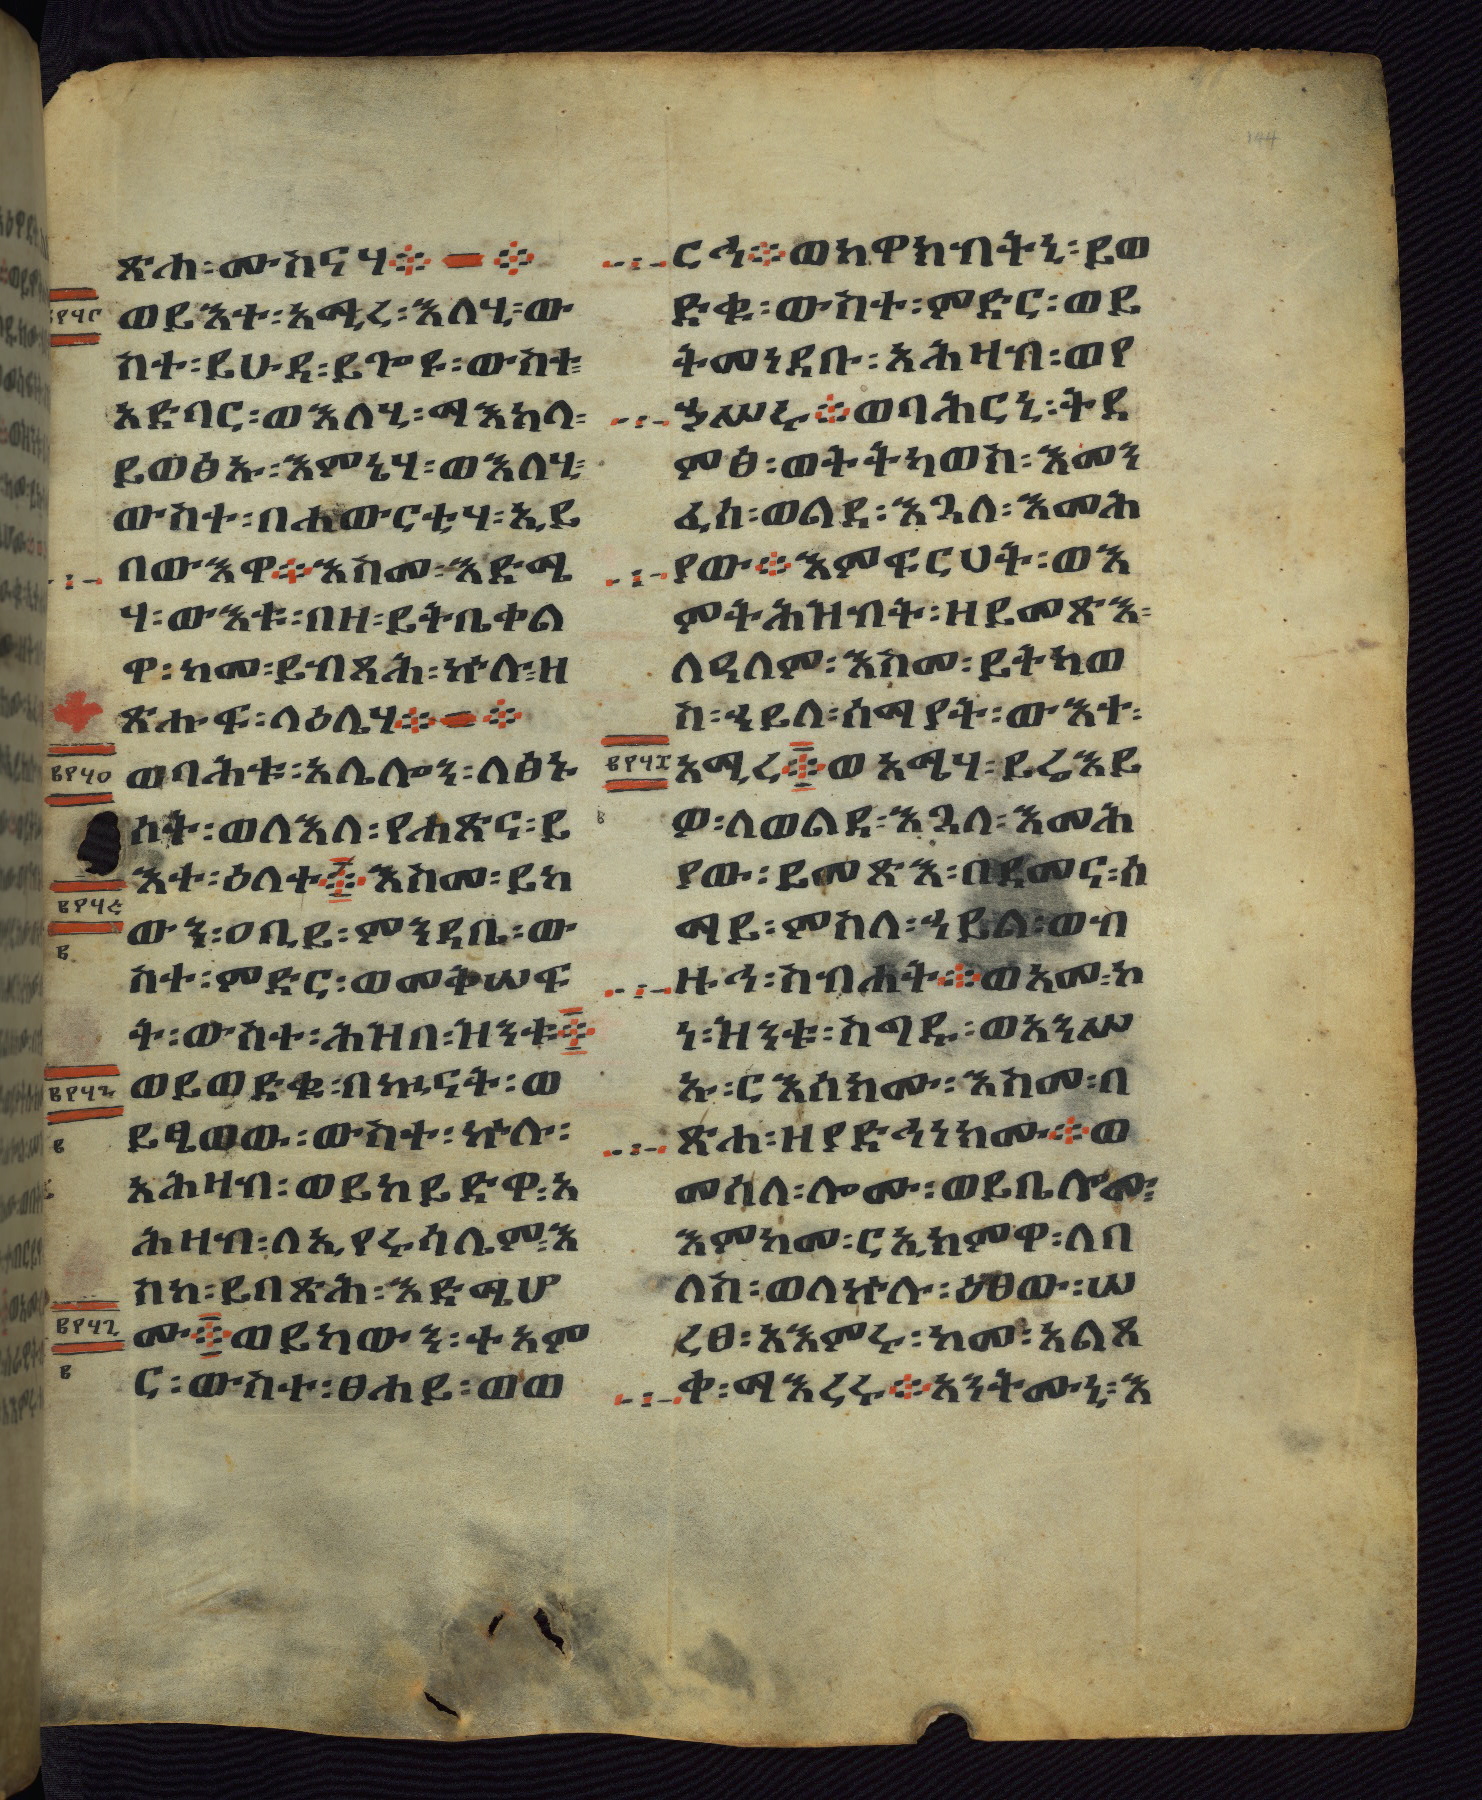 ጽሐ፡ሙስናሃ፨ ፨
ወይእተ፡አሚረ፡እለሂ፡ው
ስተ፡ይሁዳ፡ይጐዩ፡ውስተ፡
አድባር፡ወእለሂ፡ማእከላ፡
ይወፅኡ፡እምኔሃ፡ወእለሂ፡
ውስተ፡በሐውርቲሃ፡ኢይ
በውእዋ፨እስመ፡እድሜ
ሃ፡ውእቱ፡በዘ፡ይትቤቀል
ዋ፡ከመ፡ይብጻሕ፡ኵሉ፡ዘ
ጽሑፍ፡ላዕሌሃ፨ ፨
ወባሕቱ፡አሌሎን፡ለፅኑ
ሳት፡ወለእለ፡የሐጽና፡ይ
እተ፡ዕለተ፨እስመ፡ይከ
ውን፡ዐቢይ፡ምንዳቤ፡ው
ስተ፡ምድር፡ወመቅሠፍ
ት፡ውስተ፡ሕዝበ፡ዝንቱ፨
ወይወድቁ፡በኲናት፡ወ
ይፄወዉ፡ውስተ፡ኵሉ፡
አሕዛብ፡ወይከይድዋ፡አ
ሕዛብ፡ለኢየሩሳሌም፡እ
ስከ፡ይበጽሕ፡እድሜሆ
ሙ፨ወይከውን፡ተአም
ር፡ውስተ፡ፀሐይ፡ወወ
ርኅ፨ወከዋክብትኒ፡ይወ
ድቁ፡ውስተ፡ምድር፡ወይ
ትመነደቡ፡አሕዛብ፡ወየ
ኃሥሩ፨ወባሕርኒ፡ትደ
ምፅ፡ወትትሀወክ፡እመን
ፈሰ፡ወልደ፡እጓለ፡እመሕ
ያው፨እምፍርሀት፡ወእ
ምትሕዝብት፡ዘይመጽእ፡
ለዓለም፡እስመ፡ይትከወ
ስ፡ኃይለ፡ሰማያት፡ውእተ፡
አሚረ፨ወአሜሃ፡ይሬእይ
ዎ፡ለወልደ፡እጓለ፡እመሕ
ያው፡ይመጽእ፡በደመና፡ሰ
ማይ፡ምስለ፡ኃይል፡ወብ
ዙኅ፡ስብሐት፨ወአመ፡ከ
ነ፡ዝንቱ፡ስግዱ፡ወአንሥ
ኡ፡ርእሰክሙ፡እስመ፡በ
ጽሐ፡ዘያድኅነክሙ፨ወ
መሰለ፡ሎሙ፡ወይቤሎሙ፡
እምከመ፡ርኢክምዋ፡ለበ
ለስ፡ወለኵሉ፡ዕፀው፡ሠ
ረፀ፡አእምሩ፡ከመ፡አልጸ
ቀ፡ማእረሩ፨አንትሙኒ፡እ